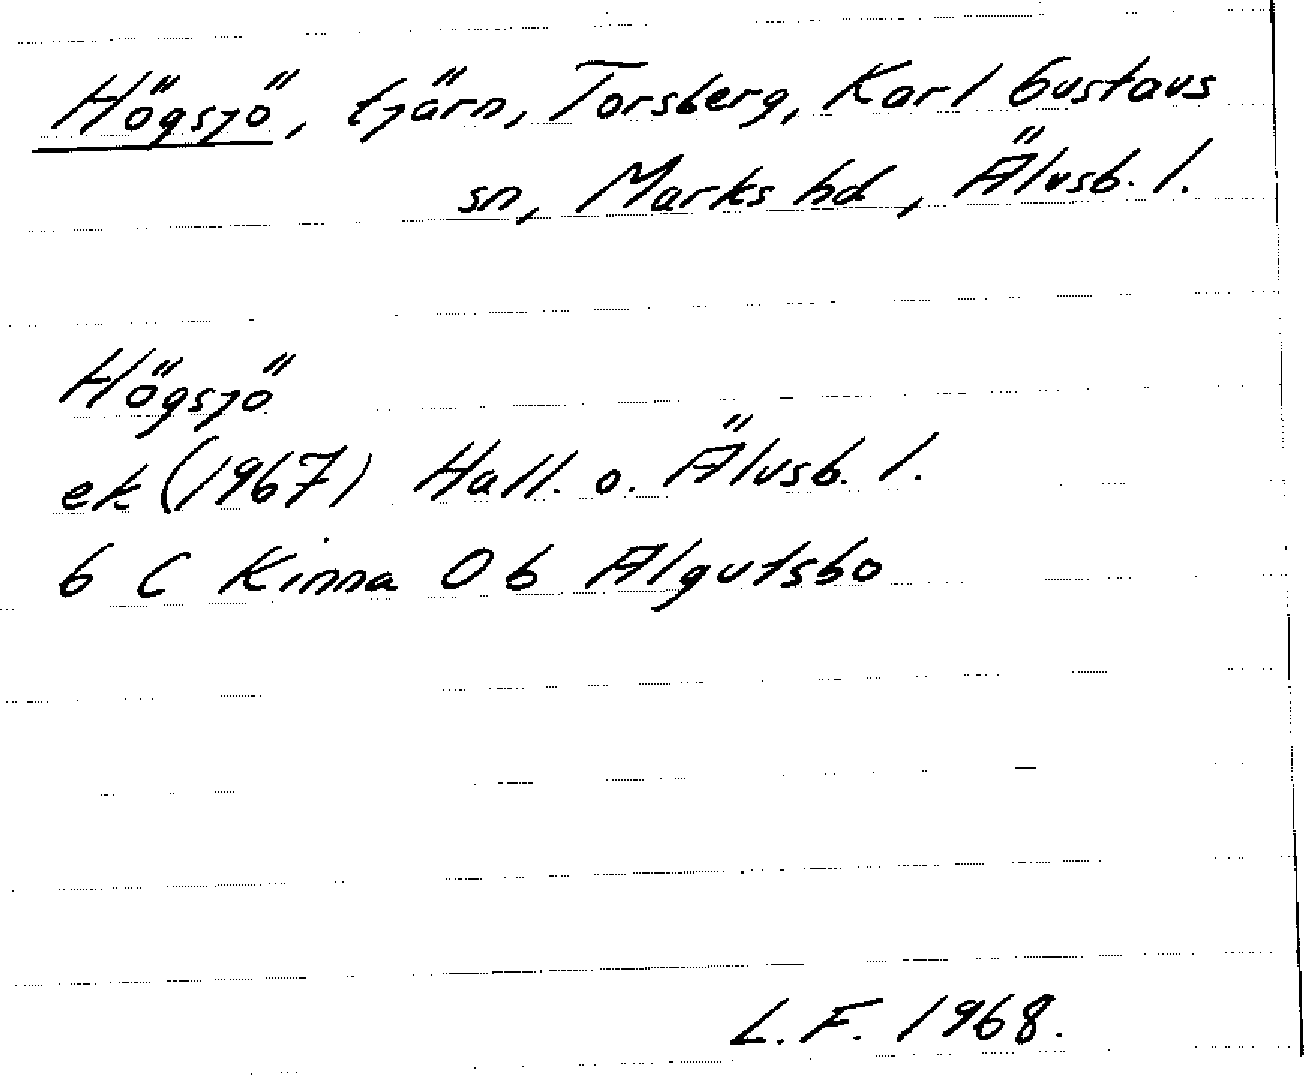 Högsjö, tjärn, Torsberg, Karl Gustavs
sn, Marks hd, Älvsb. l.
Högsjö
ek (1967) Hall. o. Älvsb. l.
6 C Kinna 0 b Algutsbo
L. F. 1968.